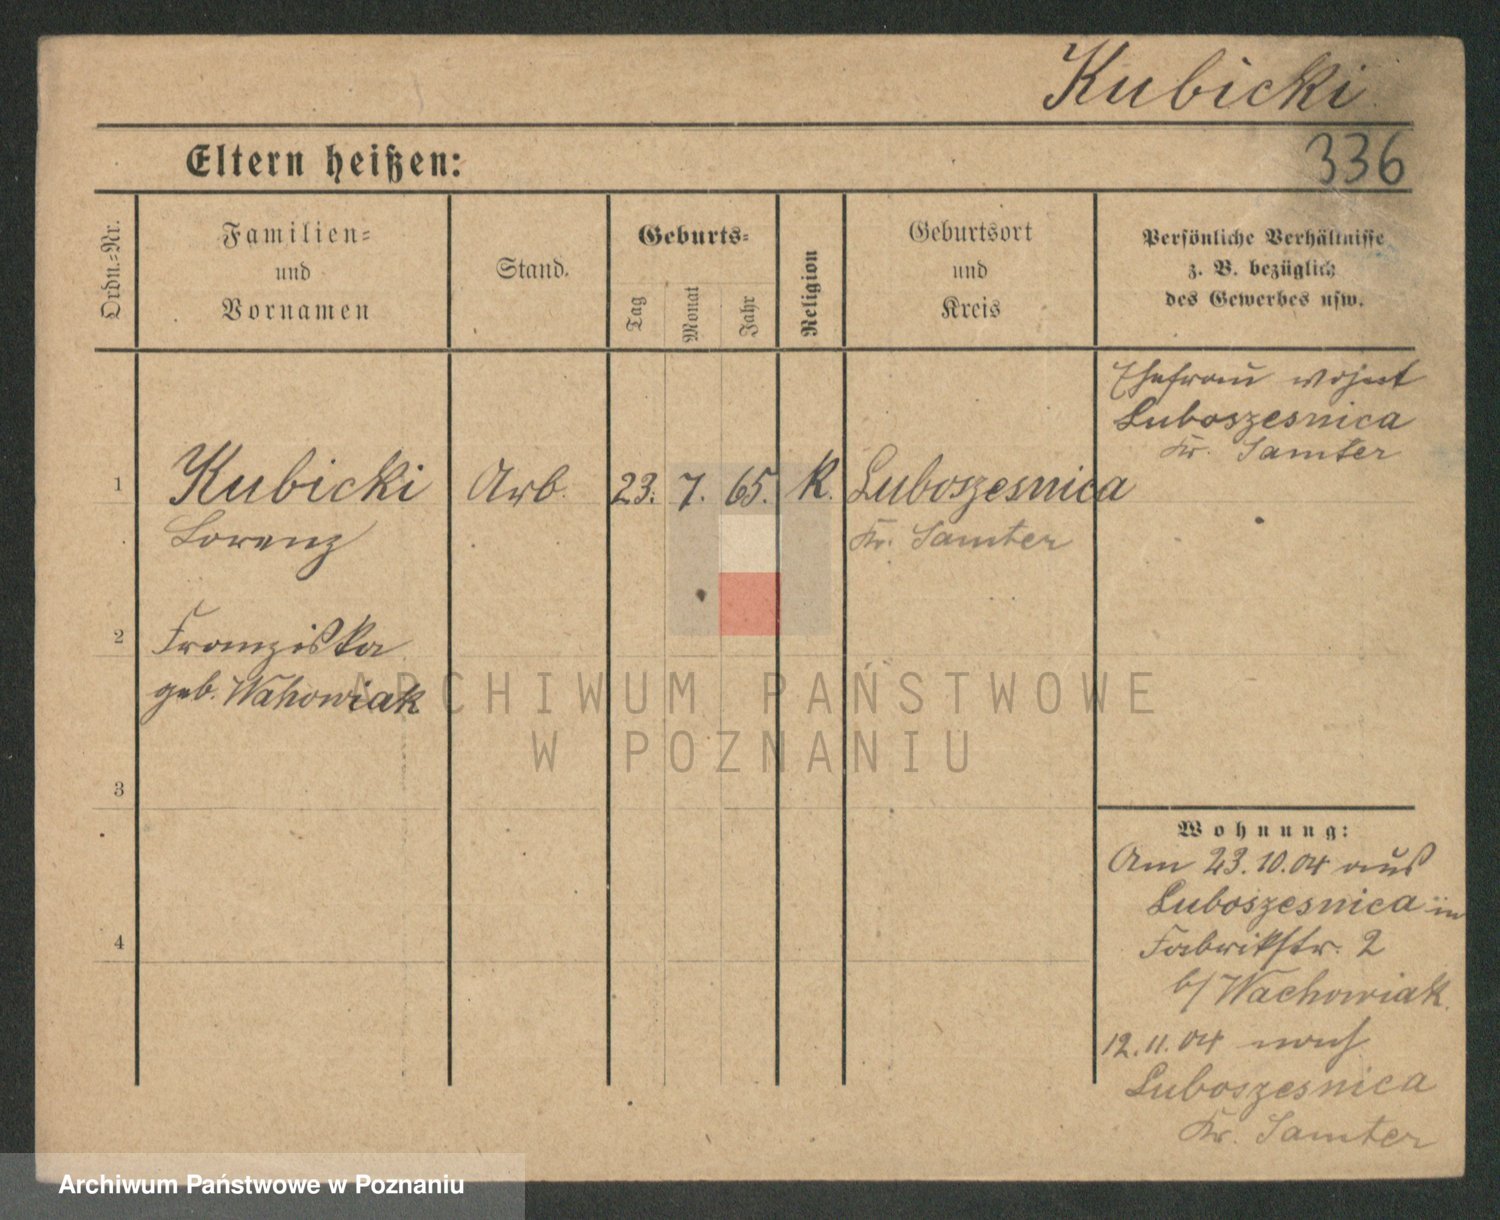 Kubicki
Eltern heißen:
336
Ordn.-Nr.
Familien-
und
Vornamen
Stand.
Geburts-
Tag
Monat
Jahr
Religion
Geburtsort
und
Kreis
Persönliche Verhältnisse
z. B. bezüglich
des Gewerbes usw.
Ehefrau wohnt
Luboszesnica
Kr. Samter
1
Kubicki
Arb.
23.
7.
65.
K.
Luboszesnica
Lorenz
Kr. Samter
2
Franziska
geb. Wahowiak
ARCHIWUM PAŃSTWOWE
W POZNANIU
3
Wohnung:
Am 23.10.04 aus
Luboszesnica in
Fabrikstr. 2
b/ Wachowiak.
4
12.11.04 nach
Luboszesnica
Kr. Samter
Archiwum Państwowe w Poznaniu